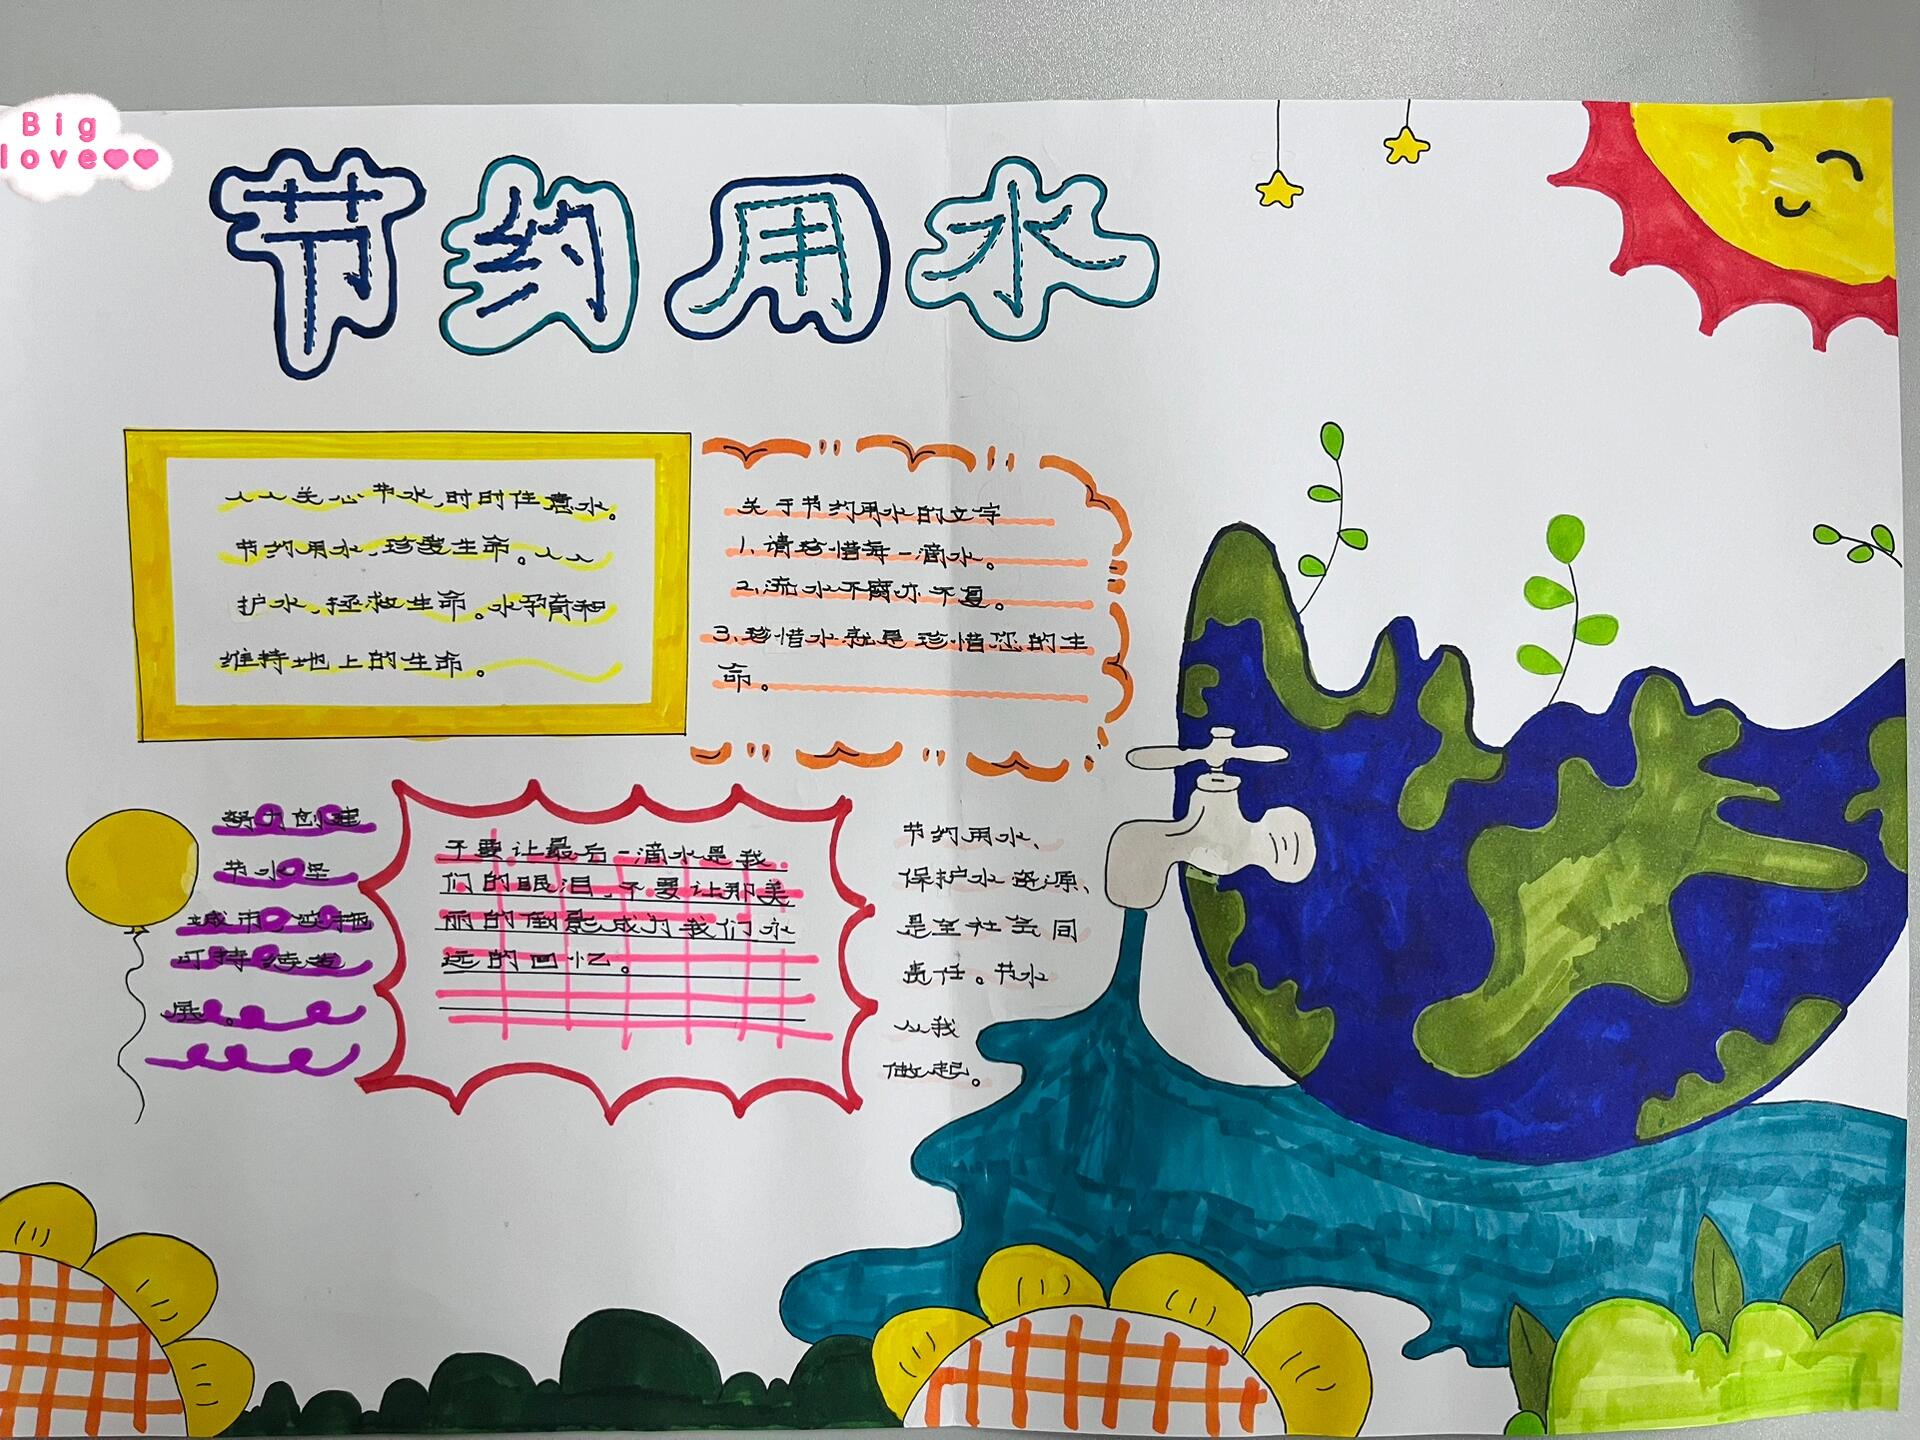 Big
love
节约用水
人人关心节水,时时注意水。
节约用水,珍爱生命。人人
护水,拯救生命。水孕育和
维持地上的生命。
关于节约用水的文字
1.请珍惜每一滴水。
2.流水不腐亦不复。
3.珍惜水就是珍惜您的生
命。
努力创建
节水型
城市
可持续发
展。
不要让最后一滴水是我
们的眼泪,不要让那美
丽的倒影成为我们永
远的回忆。
节约用水、
保护水资源、
是全社会同
责任。节水
从我
做起。